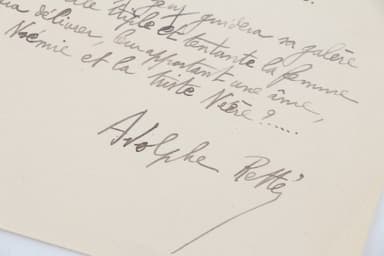 guidera sa galère
triple et tentante la femme
délivrer, leur apportant une âme,
Noémie et la triste Néère ?.....
Adolphe Retté